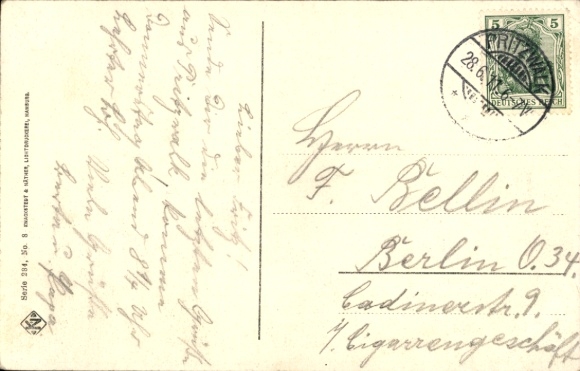 Lieber Fritz!
Sende Dir die letzten Grüße
aus Pritzwalk, komme
Sonnabend 8¼ Uhr
Lehrter Bhf.
Viele Grüße
u. Papa
Serie 284, No. 8 KNACKSTEDT & NÄTHER, LICHTDRUCKEREI, HAMBURG.
N
5 5
PRITZWALK
28.6.
DEUTSCHES REICH
Herrn
F. Bellin
Berlin O. 34.
Cadinerstr. 9.
Cigarrengeschäft